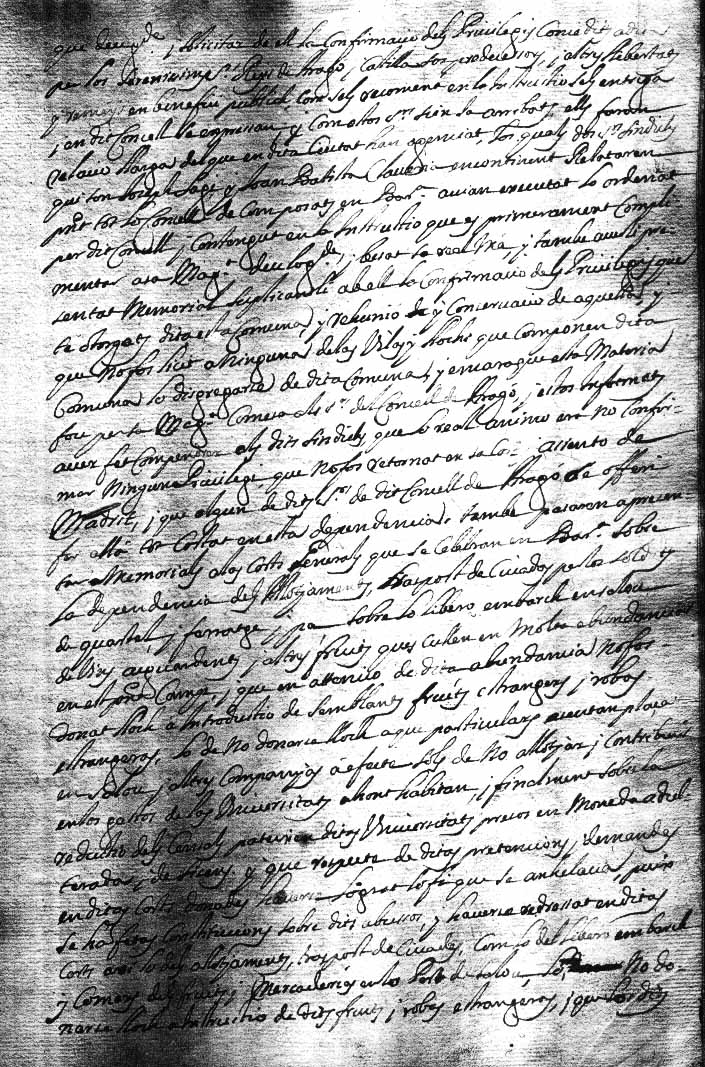 que Deu gde, i solicitar de ell la Confirmacio dels Privilegis Concedits
pe los Serenissims Srs Reys de Arago, i altres llibertats
y remeys en benefici publich com sels recoment en la Instructio sels entrega
i en dit Concell se expressan, y com estos Srs sien ja arribats, ells faran
relacio llarga del que en dita Ciutat han agenciat, los quals dits Srs Sindichs
que son Joseph y Joan Batista encontinent Relataren
pnt tot lo Concell de Composats en Barna avian executat lo ordenat
per dit Concell, y Contengut en la Instructio que es primerament Compli-
mentar a sa Magt Deu lo gde, i besat sa real Ma y tambe aver li pre-
sentat Memorial suplicantli a be ell la Confirmacio dels Privilegis que
te otorgats dita esta Comuna, y rehunio de y Conservacio de aquella, y
que no fos licit a ninguna de las Vilas y llochs que Componen dita
Comuna lo disgregarse de dita Comuna, y encara que esta Materia
fou per sa Magt Comesa als Srs del Concell de Arago, i estos Informats
aver fet Compendrer als dits Sindichs que lo real animo era No Confir-
mar Ningun Privilegi que no fos retornat en sa Cort i assento de
Madrit, i que algun de dits Srs de dit Concell de Arago se offeri
fer alla tot Costat en esta dependencia, tambe passaren a presen-
tar Memorials a las Corts Generals que se Celebran en Barna sobre
la dependencia dels Allotjaments, traspost de Civadas pe los soldats
de quartel, y farratge, i pa sobre lo llibero embarch en salou
de Vins aiguardents, i altres fruits ques Cullen en Molta abundancia
en est pnt Camp, i que en attencio de dita abundancia No fos
donat lloch a Introductio de semblants fruits estrangers, i robas
estrangeras, lo de No donarse lloch a que particulars acceptan plaça
en salou i altres Companyias a efecte sols de No allotjar, i Contribuir
en los gastos de las Universitats ahont habitan, i finalment sobre la
reductio dels Censals paturien ditas Universitats presos en Moneda adul-
terada, i de sisens y que respecte de ditas pretencions, i demandas
en ditas Corts donadas haverse lograt lo fi que se anhelava, puix
se han fetas Constitucions sobre dits abussos, y haverse redressat en ditas
Corts axi lo dels allotjaments, traspost de Civadas, Com lo del llibero embarch
y Comers dels fruits, i Mercaderias en lo Port de salou, lo No do-
narse lloch a Introductio de dits fruits, i robas estrangeras, i que los dits